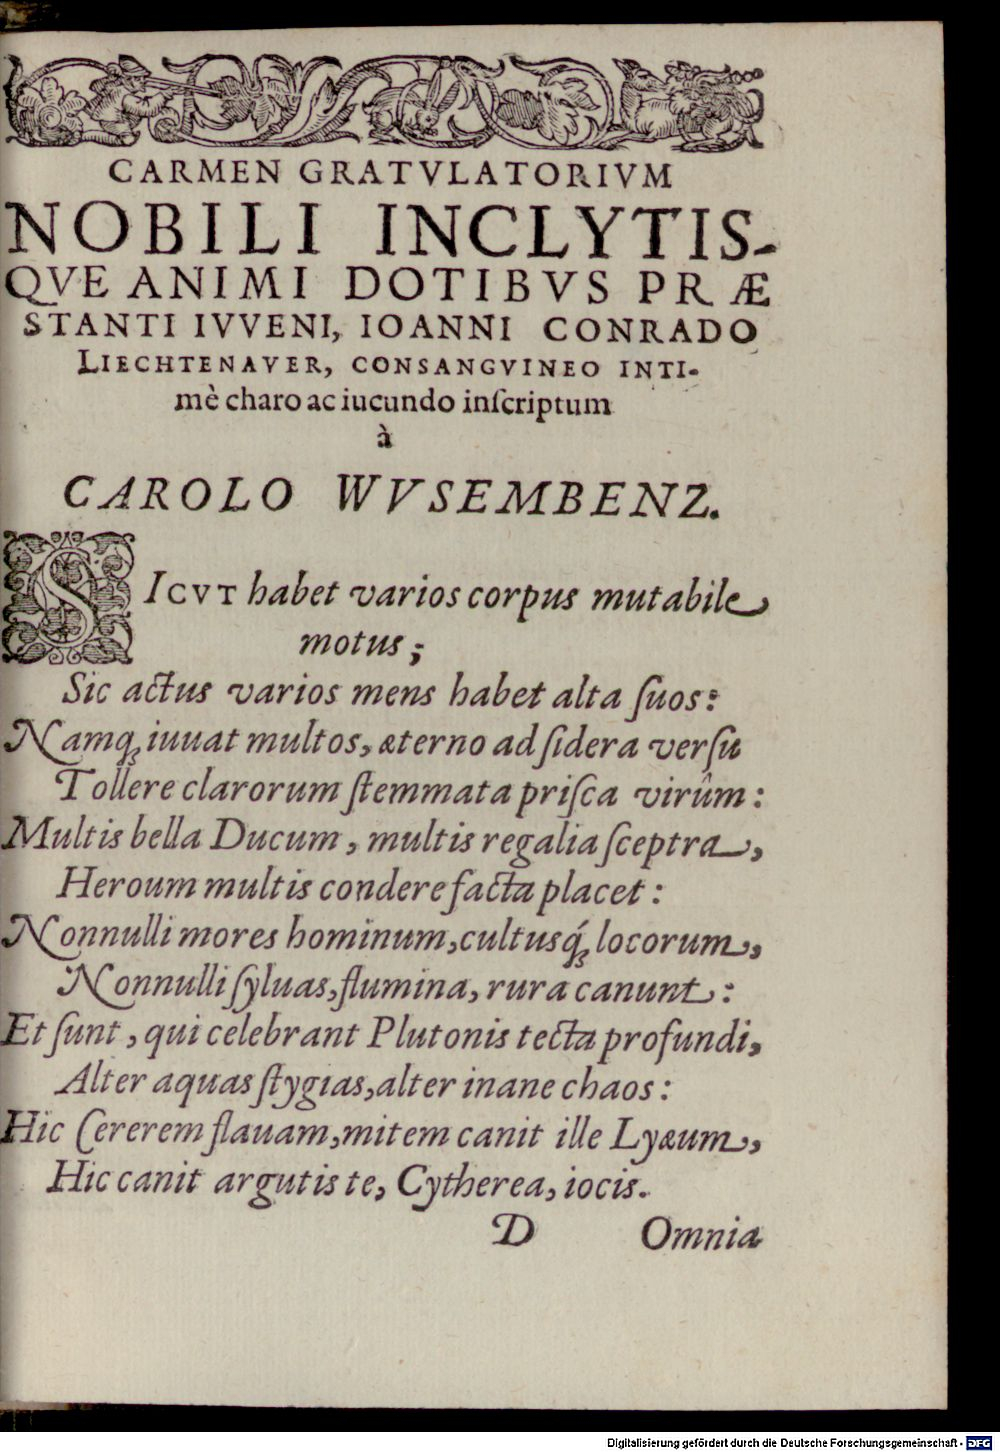 CARMEN GRATVLATORIVM
NOBILI INCLYTIS-
QVE ANIMI DOTIBVS PRÆ
STANTI IVVENI, IOANNI CONRADO
LIECHTENAVER, CONSANGVINEO INTI-
mè charo ac iucundo inſcriptum
à
CAROLO WVSEMBENZ.
SICVT habet varios corpus mutabile
motus;
Sic actus varios mens habet alta ſuos:
Namq́; iuuat multos, æterno ad ſidera verſu
Tollere clarorum ſtemmata priſca virûm:
Multis bella Ducum, multis regalia ſceptra,
Heroum multis condere facta placet:
Nonnulli mores hominum, cultusq́; locorum,
Nonnulli ſyluas, flumina, rura canunt:
Et ſunt, qui celebrant Plutonis tecta profundi,
Alter aquas ſtygias, alter inane chaos:
Hic Cererem flauam, mitem canit ille Lyæum,
Hic canit argutis te, Cytherea, iocis.
D Omnia
Digitalisierung gefördert durch die Deutsche Forschungsgemeinschaft - DFG